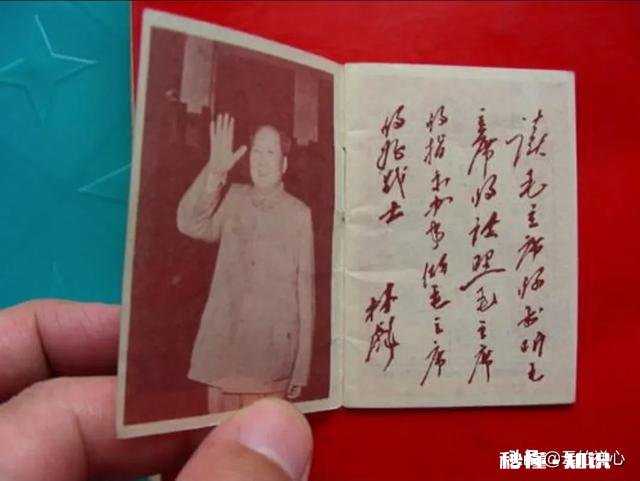 读毛主席的书听毛
主席的话照毛主席
的指示办事做毛主席
的好战士
林彪
秒懂·知识